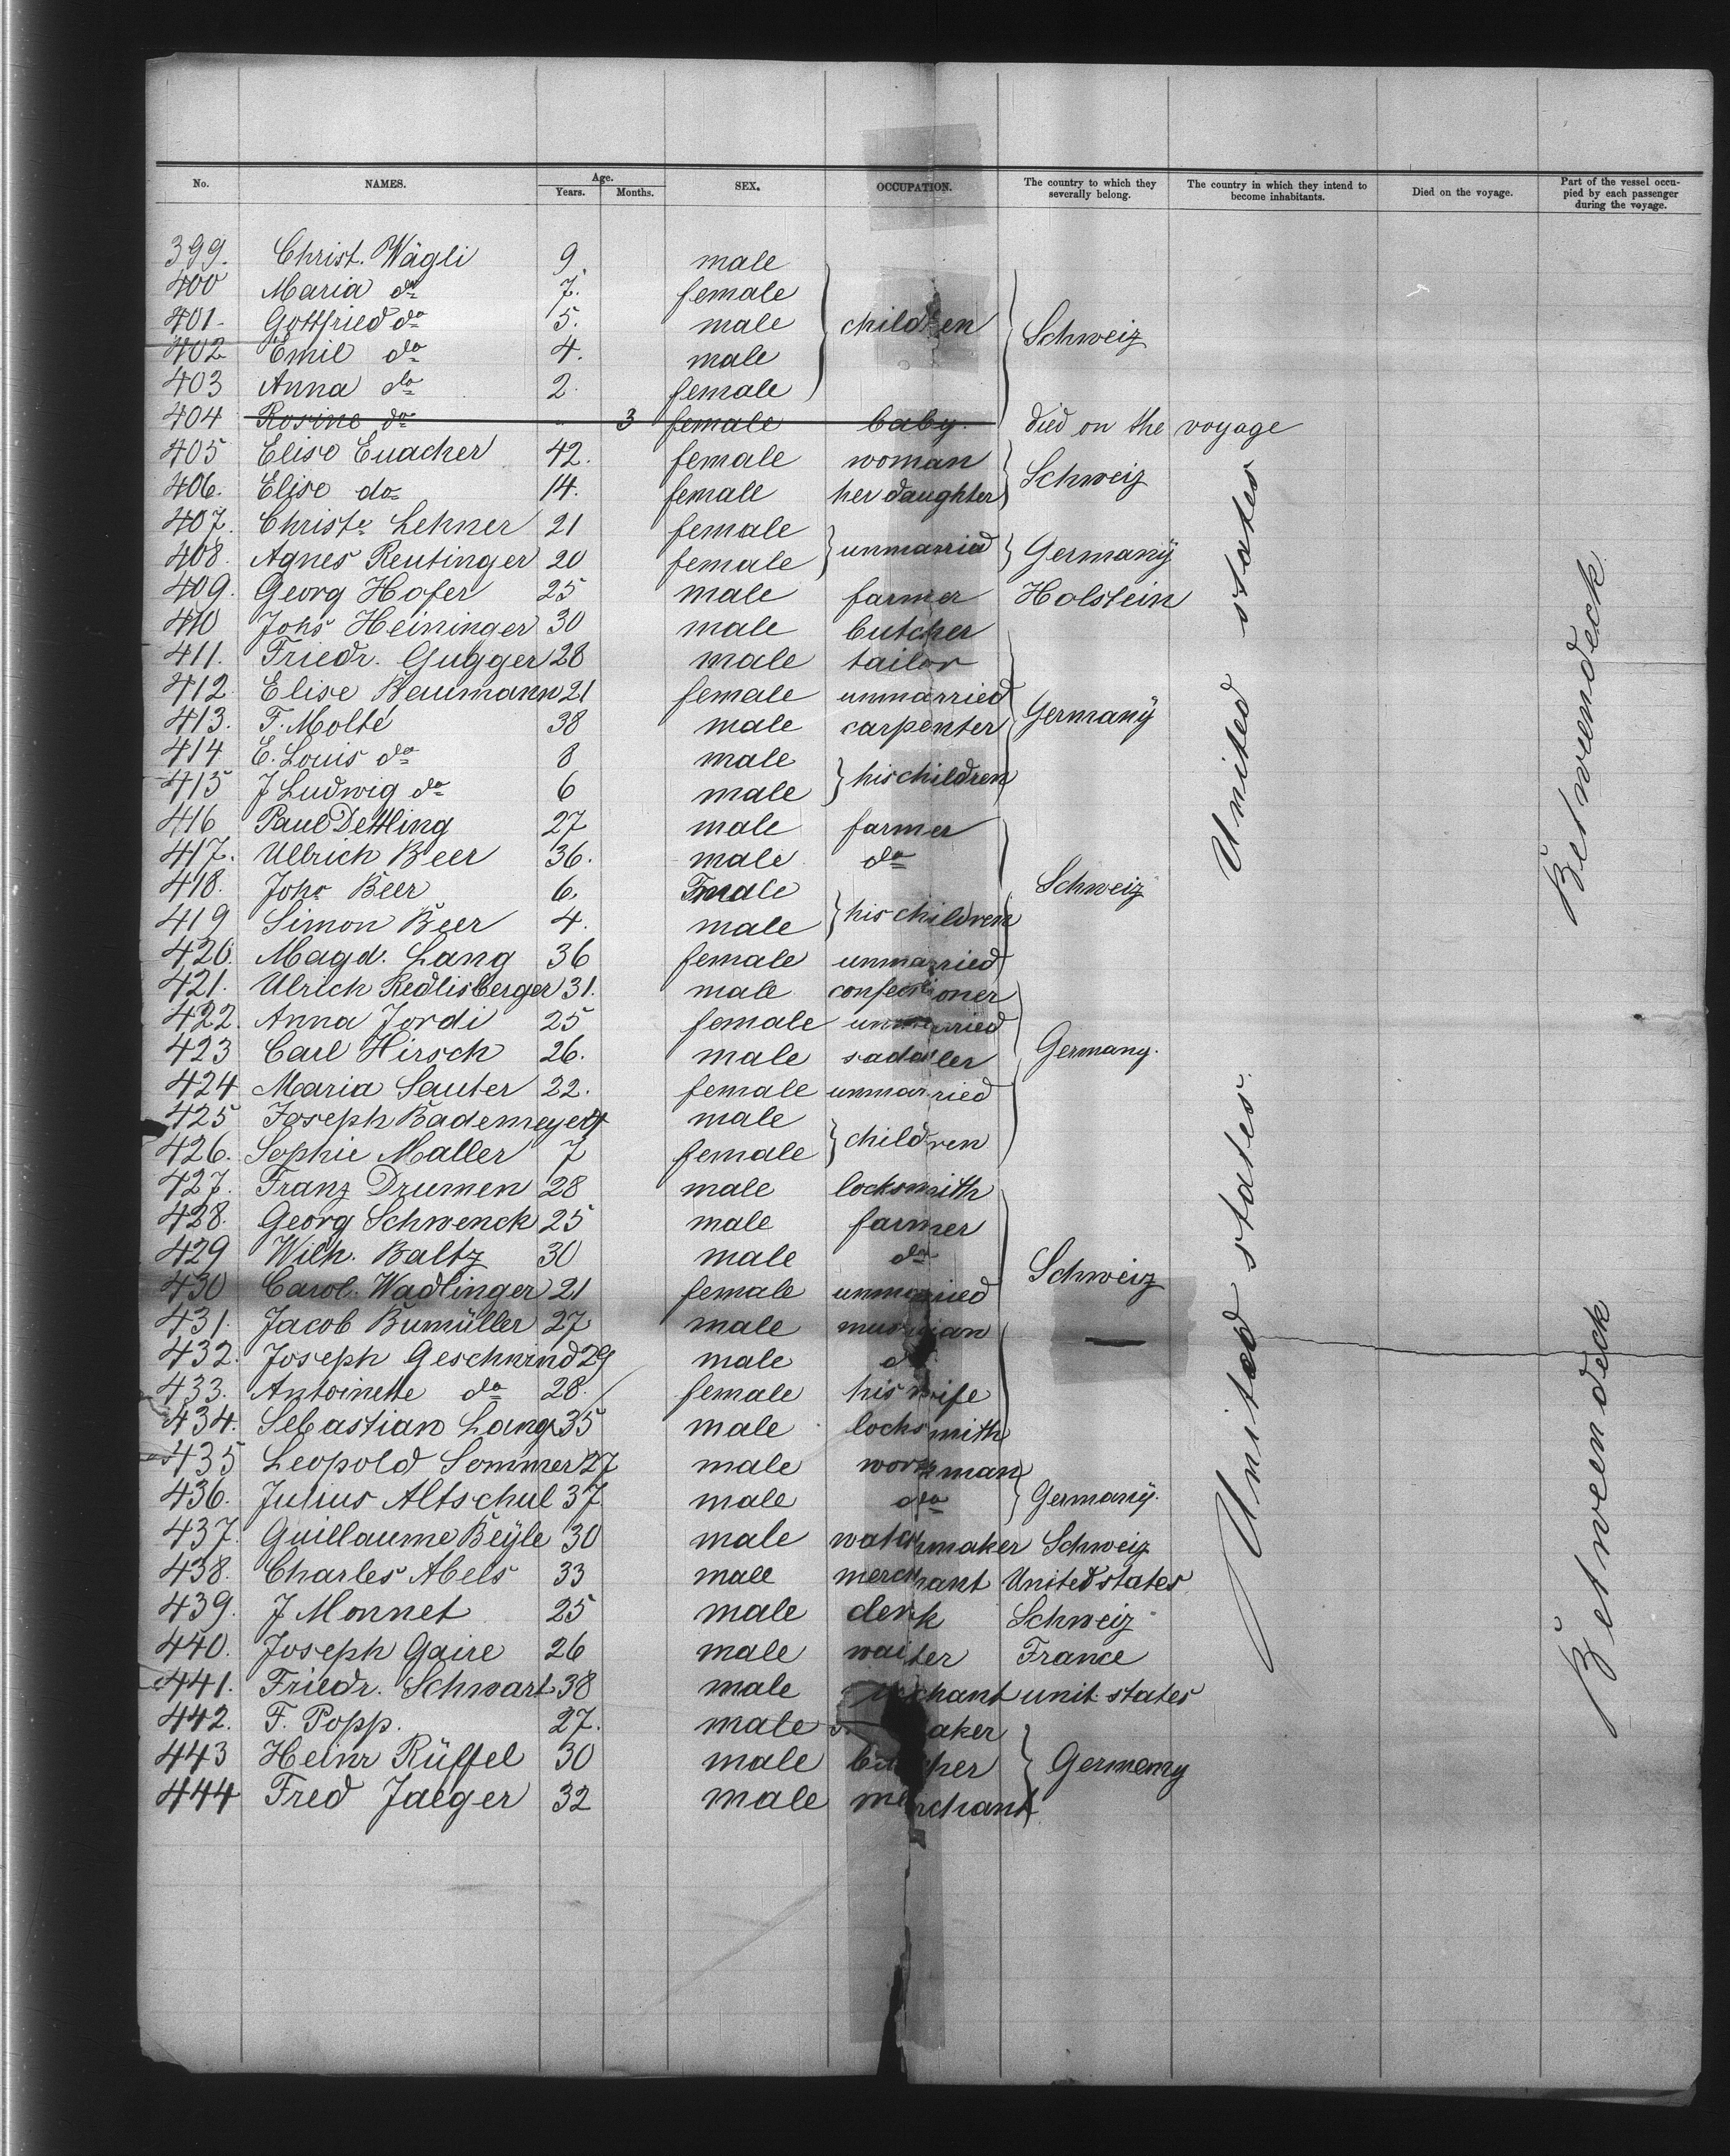 No. NAMES. Age. Years. Months. SEX. OCCUPATION. The country to which they severally belong. The country in which they intend to become inhabitants. Died on the voyage. Part of the vessel occupied by each passenger during the voyage.
399. Christ. Wägli 9. male
400 Maria do 7. female
401. Gottfried do 5. male children Schweiz
402 Emil do 4. male
403 Anna do 2. female
404 Rosine do 3 female baby. died on the voyage
405 Elise Euacher 42. female woman
406. Elise do 14. female her daughter Schweiz
407. Christe Lehner 21 female
408. Agnes Reutinger 20 female unmarried Germany
409. Georg Hofer 25 male farmer Holstein
410 Johs Heininger 30 male butcher
411. Friedr. Gugger 28 male tailor
412 Elise Baumann 21 female unmarried
413. F. Molté 38 male carpenter Germany
414 E. Louis do 8 male
415 J Ludwig do 6 male his children
416 Paul Dettling 27 male farmer
417. Ullrich Beer 36. male do
418. Johs Beer 6. male Schweiz
419 Simon Beer 4. male his children
420. Magd. Lang 36 female unmarried
421. Ulrich Redlisberger 31. male confectioner
422. Anna Jordi 25 female unmarried
423 Carl Hirsch 26. male saddler Germany.
424 Maria Sauter 22. female unmarried
425 Joseph Bademeyer 4 male
426. Sophie Maller 7 female children
427. Franz Drumen 28 male locksmith
428. Georg Schwenck 25 male farmer
429 Wilh. Baltz 30 male do
430 Carol. Wadlinger 21 female unmarried Schweiz
431. Jacob Bumüller 27 male musician
432. Joseph Geschwind 29 male do
433. Antoinette do 28. female his wife
434. Sebastian Lang 35 male locksmith
435 Leopold Sommer 27 male workman
436. Julius Altschul 37 male do Germany.
437. Guillaume Beyle 30 male watchmaker Schweiz
438. Charles Abels 33 male merchant United states
439. J Monnet 25 male clerk Schweiz
440. Joseph Gaire 26 male waiter France
441. Friedr. Schwart 38 male merchant unit. states
442. F. Popp. 27. male
443 Heinr Rüffel 30 male butcher Germany
444 Fred Jaeger 32 male merchant
United states
United states.
Betweendeck.
Betweendeck